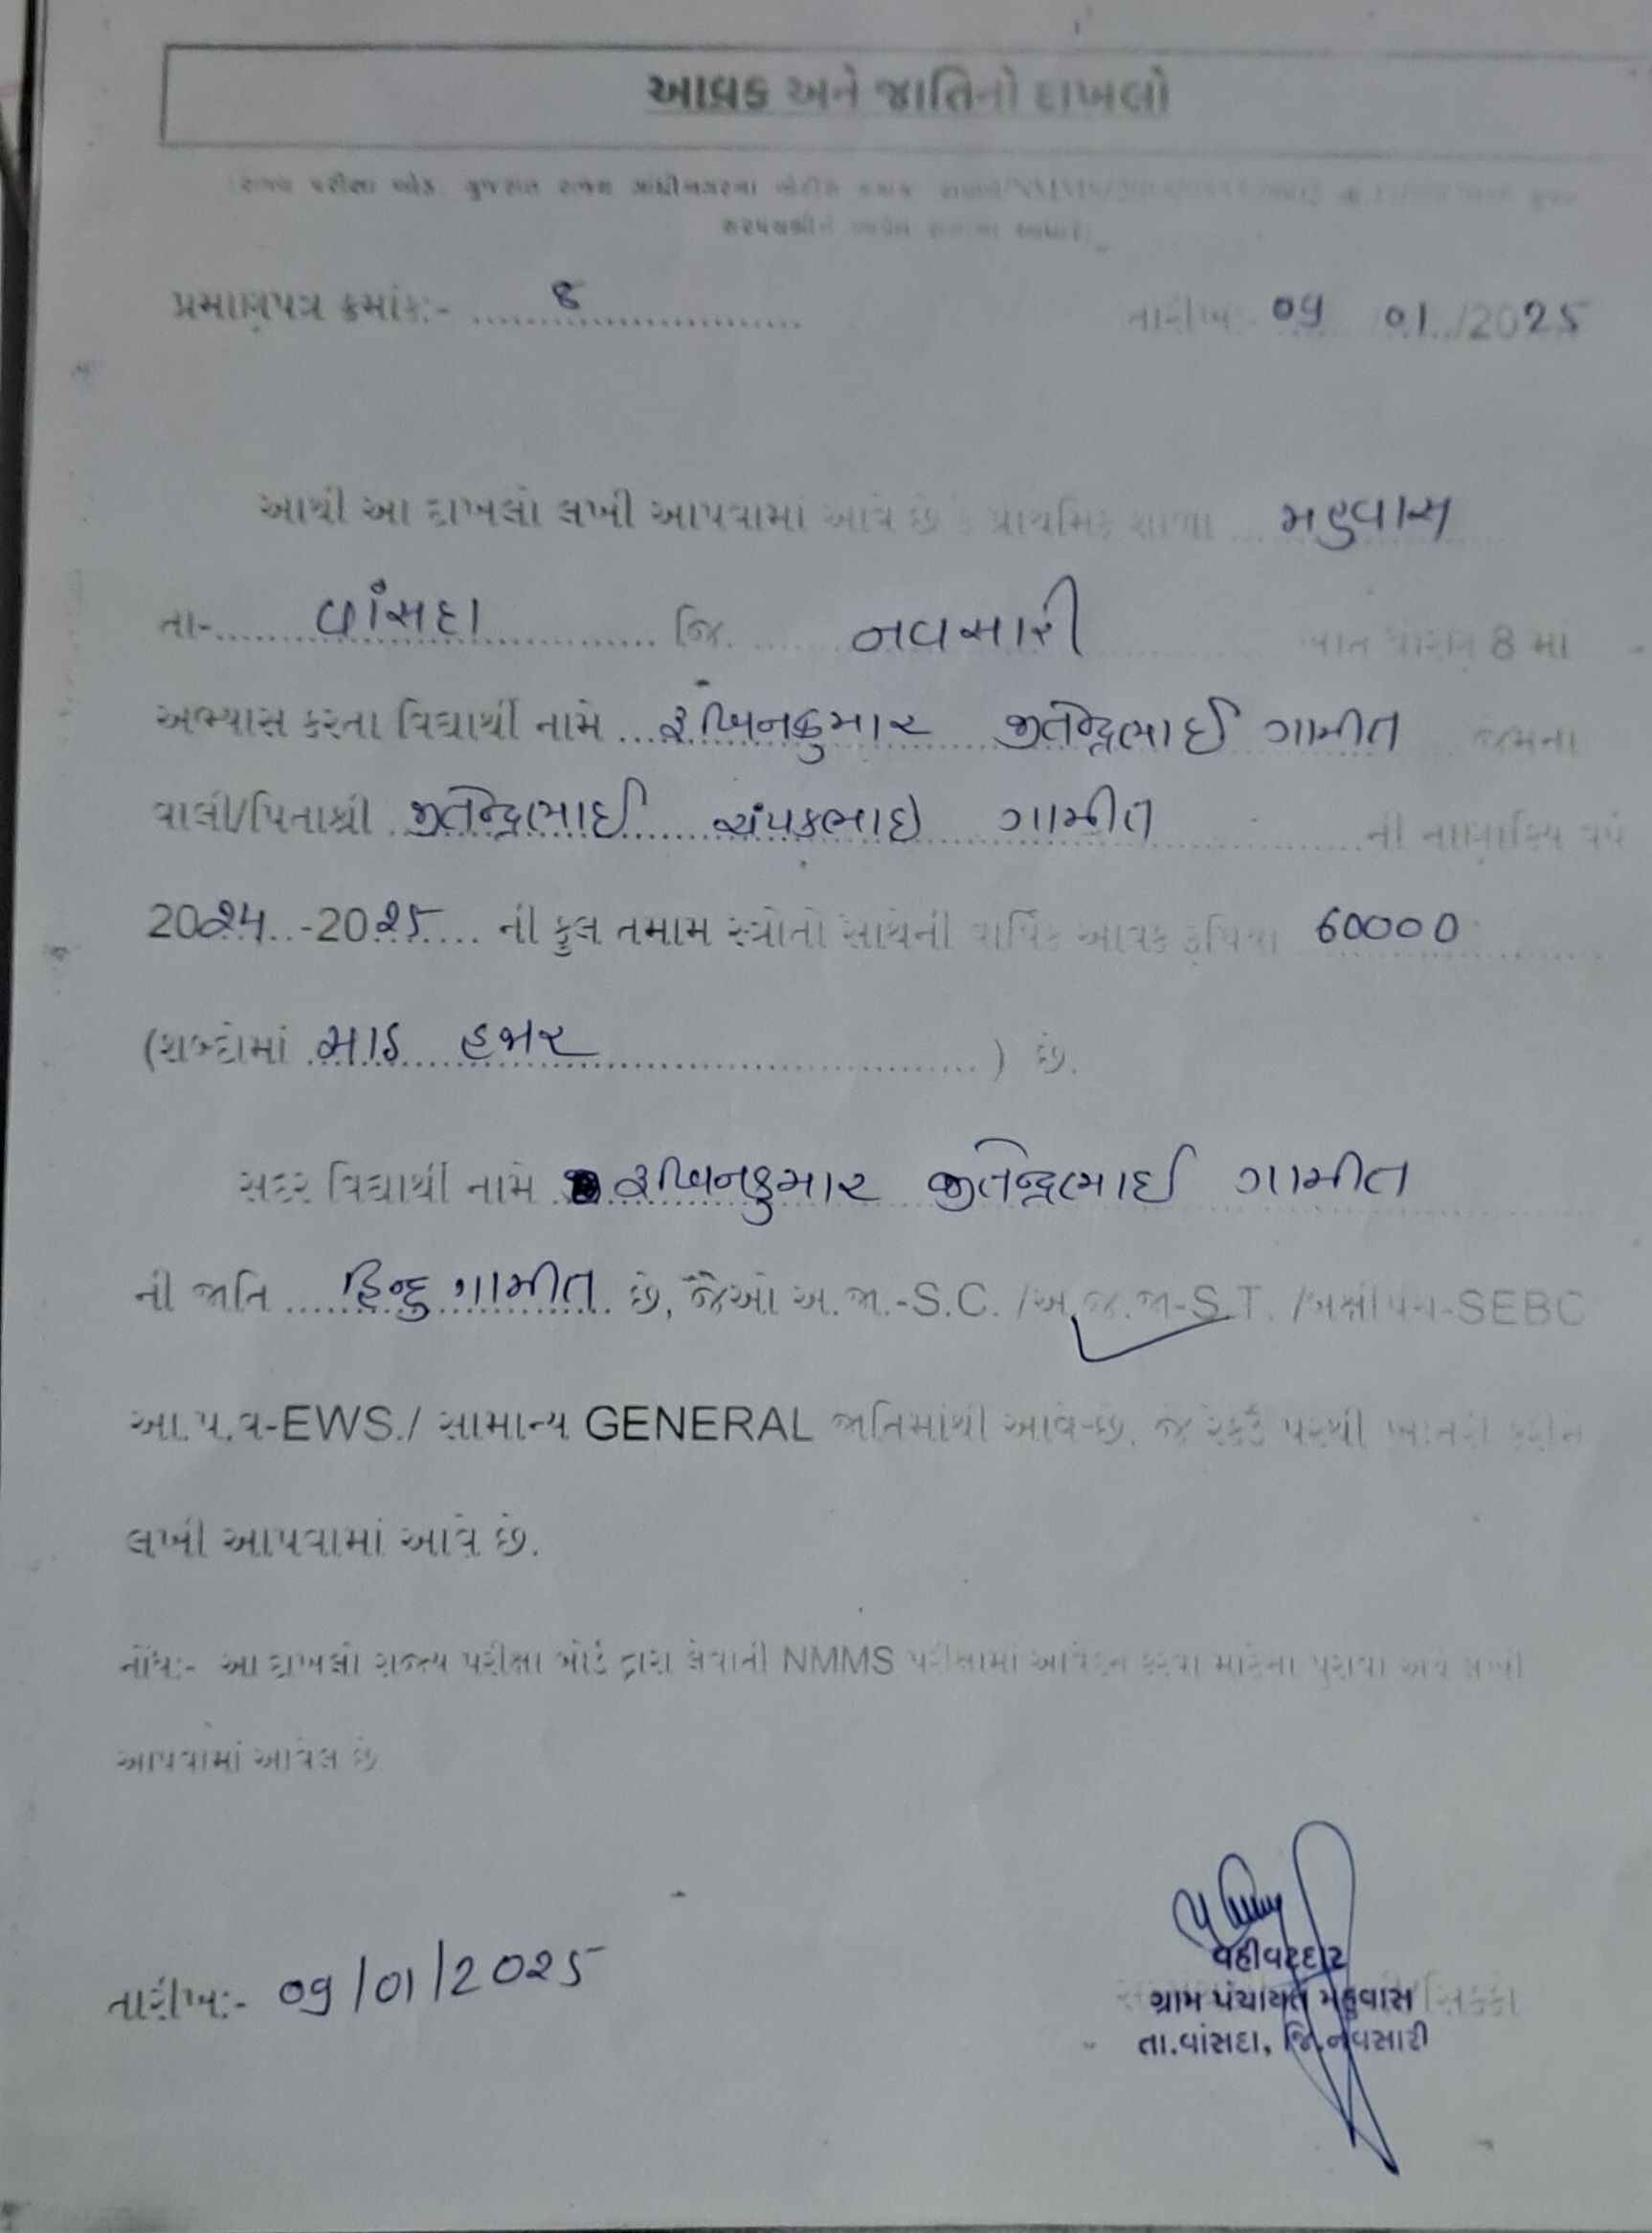 આવક અને જાતિનો દાખલો
પ્રમાણપત્ર ક્રમાંક:- ....8.... તારીખ:- 09 01/2025
આથી આ દાખલો લખી આપવામાં આવે છે કે પ્રાથમિક શાળા ... મહુવાસ
તા-...... વાંસદા ...... જિ. ...... નવસારી ધોરણ 8 માં
અભ્યાસ કરતા વિદ્યાર્થી નામે ... જીતેન્દ્રભાઈ ગામીત જેમના
વાલી/પિતાશ્રી જીતેન્દ્રભાઈ ચંપકભાઇ ગામીત ......ની નાણાકિય વર્ષ
2024..-2025.... ની કુલ તમામ સ્ત્રોતો સાથેની વાર્ષિક આવક રૂપિયા 60000
(શબ્દોમાં સાઠ હજાર ............) છે.
સદર વિદ્યાર્થી નામે જીતેન્દ્રભાઈ ગામીત
ની જાતિ ....હિન્દુ ગામીત. છે, જેઓ અ.જા.-S.C. /અ.જ.જા-S.T. /બક્ષીપંચ-SEBC
આ.પ.વ-EWS./ સામાન્ય GENERAL જાતિમાંથી આવે છે. જે રેકર્ડ પરથી ખાતરી કરીને
લખી આપવામાં આવે છે.
નોંધ:- આ દાખલો રાજ્ય પરીક્ષા બોર્ડ દ્વારા લેવાતી NMMS પરીક્ષામાં આવેદન કરવા માટેના પુરાવા અર્થે લખી
આપવામાં આવેલ છે
તારીખ:- 09/01/2025
વહીવટદાર
ગ્રામ પંચાયત મહુવાસ
તા.વાંસદા, જિ.નવસારી